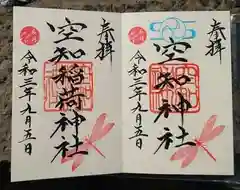 奉拝
空知稲荷神社
令和三年九月五日
奉拝
空知神社
令和三年九月五日